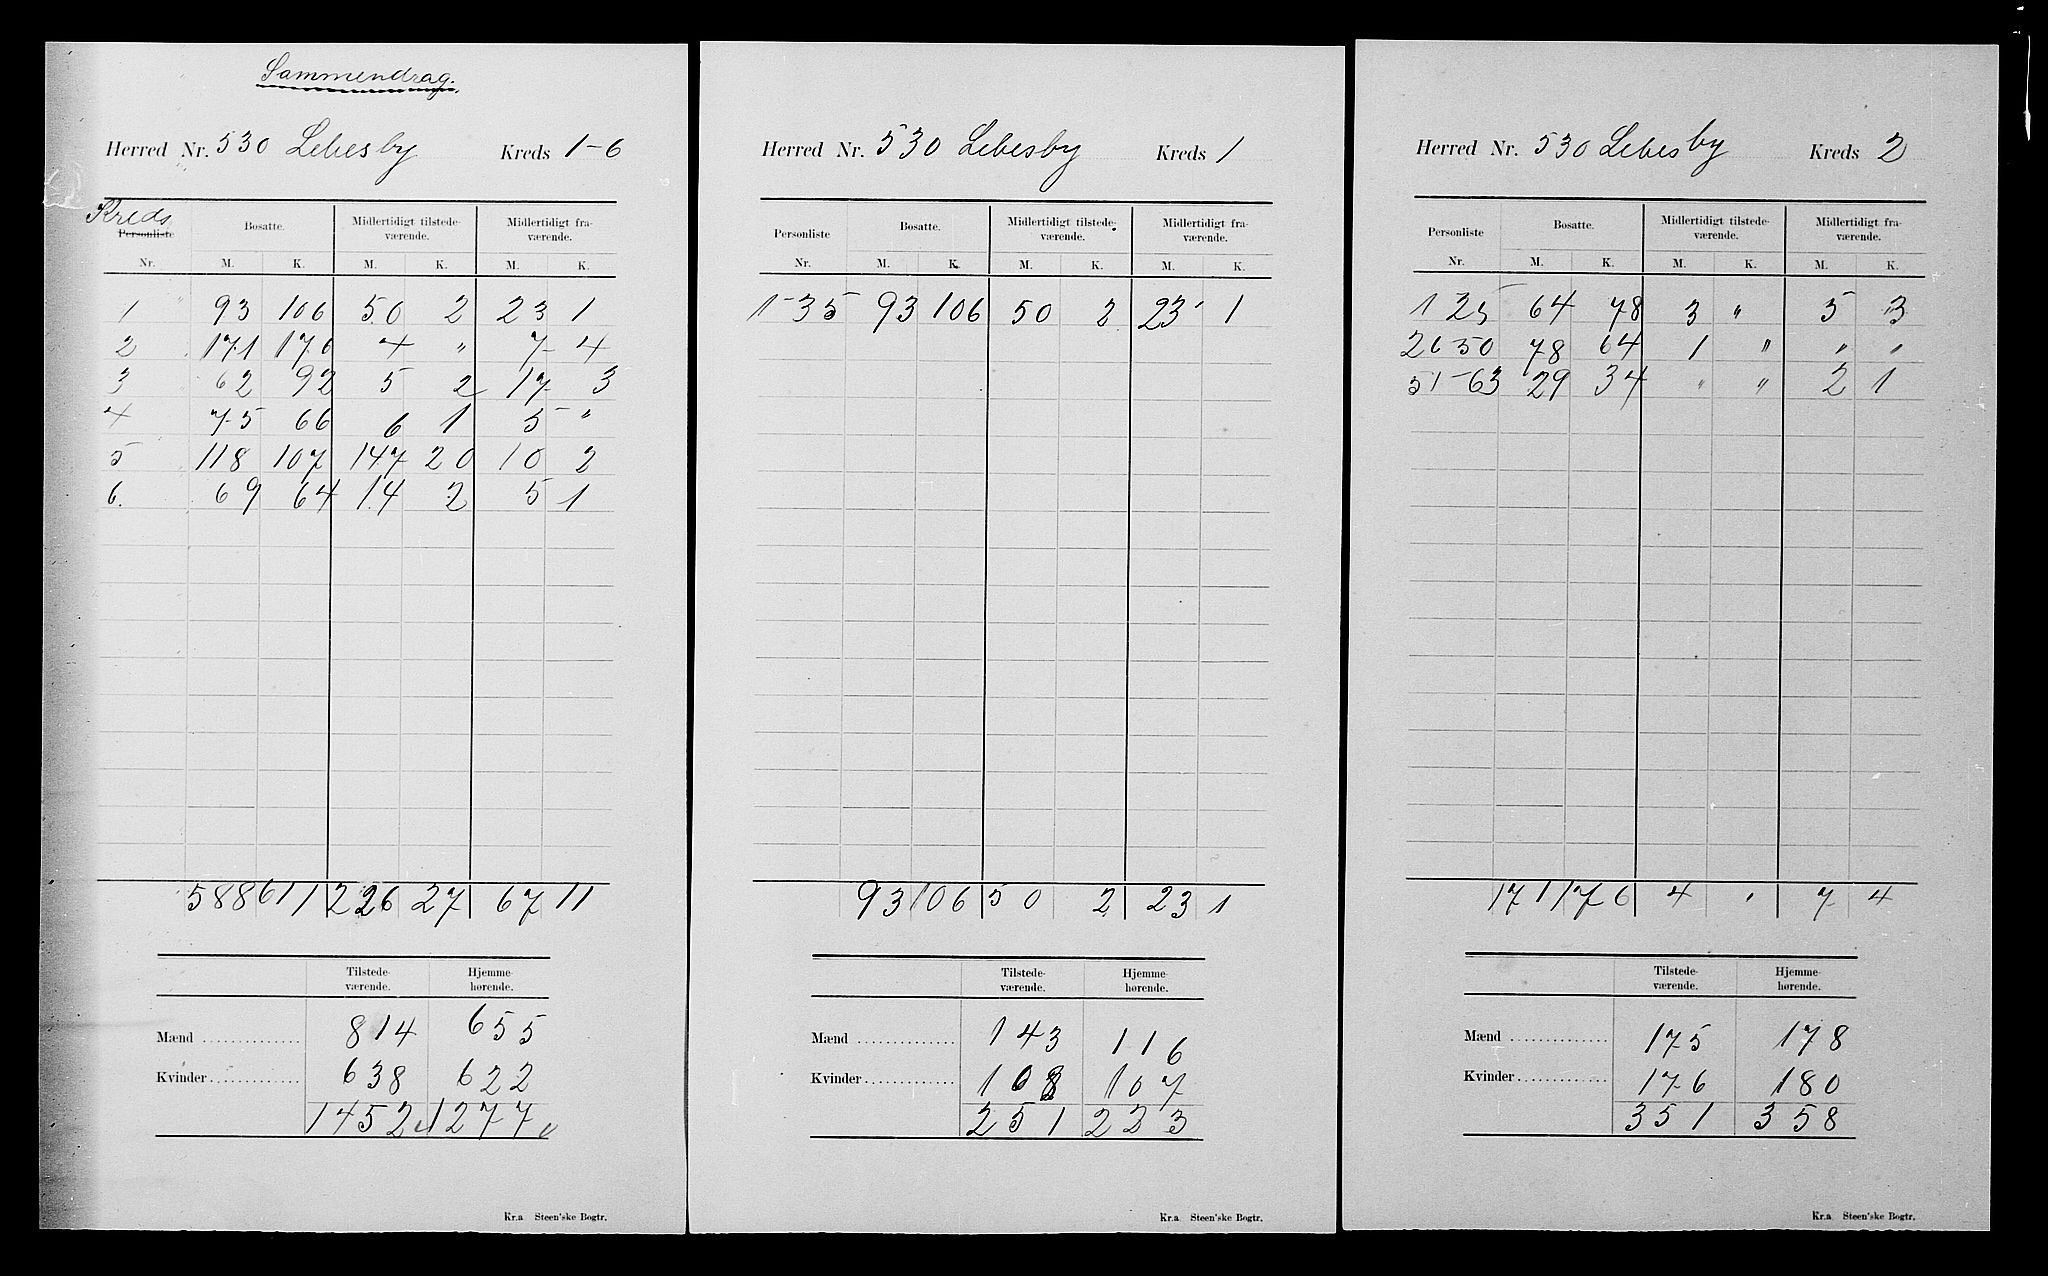 Sammendrag.
Herred Nr. 530 Lebesby Kreds 1-6
Kreds
Personliste Bosatte. Midlertidigt tilstede- Midlertidigt fra-
værende. værende.
Nr. M. K. M. K. M. K.
1 " 93 106 50 2 23 1
2 171 176 4 " 7 4
3 62 92 5 2 17 3
4 75 66 6 1 5 "
5 118 107 147 20 10 2
6. 69 64 14 2 5 1
588 611 226 27 67 11
Tilstede- Hjemme-
værende. hørende.
Mænd 814 655
Kvinder 638 622
1452 1277
Kr.a Steen'ske Bogtr.
Herred Nr. 530 Lebesby Kreds 1
Personliste Bosatte. Midlertidigt tilstede- Midlertidigt fra-
værende. værende.
Nr. M. K. M. K. M. K.
1-35 93 106 50 2 23 1
93 106 50 2 23 1
Tilstede- Hjemme-
værende. hørende.
Mænd 143 116
Kvinder 108 107
251 223
Kr.a Steen'ske Bogtr.
Herred Nr. 530 Lebesby Kreds 2
Personliste Bosatte. Midlertidigt tilstede- Midlertidigt fra-
værende. værende.
Nr. M. K. M. K. M. K.
1 25 64 78 3 " 5 3
26 50 78 64 1 " " "
51-63 29 34 " " 2 1
171 176 4 " 7 4
Tilstede- Hjemme-
værende. hørende.
Mænd 175 178
Kvinder 176 180
351 358
Kr.a Steen'ske Bogtr.